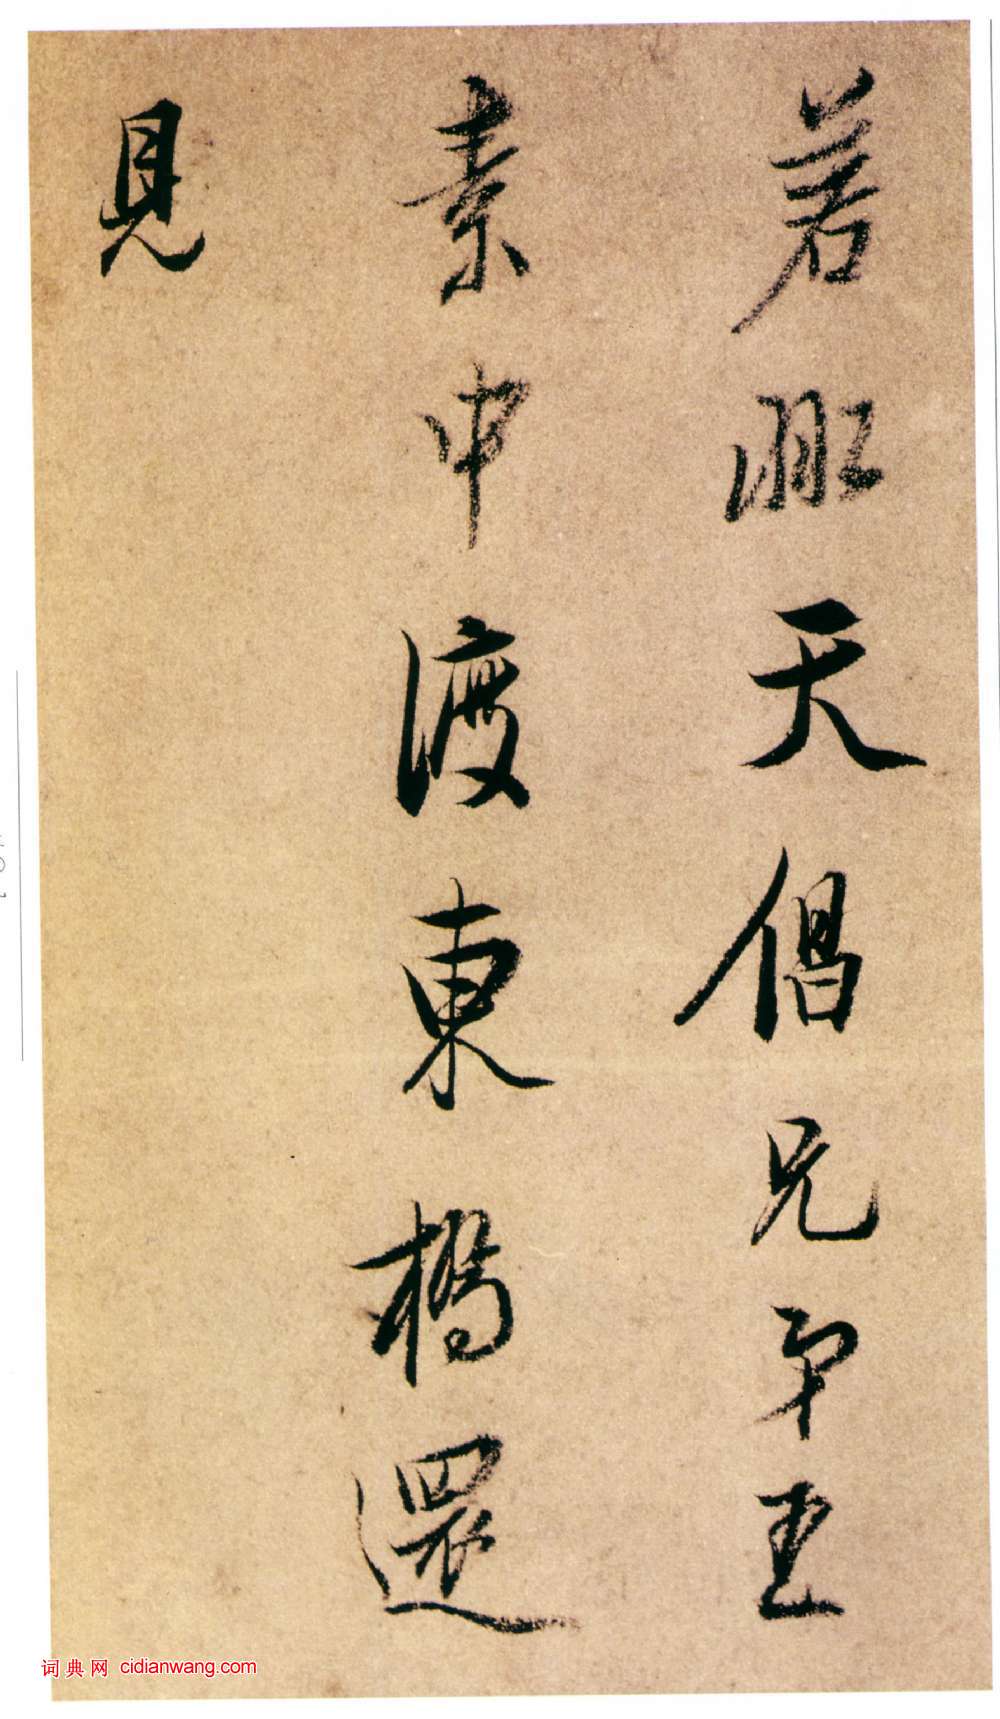 若天倡兄弟王
素中渡東橋還
見
词典网 cidianwang.com